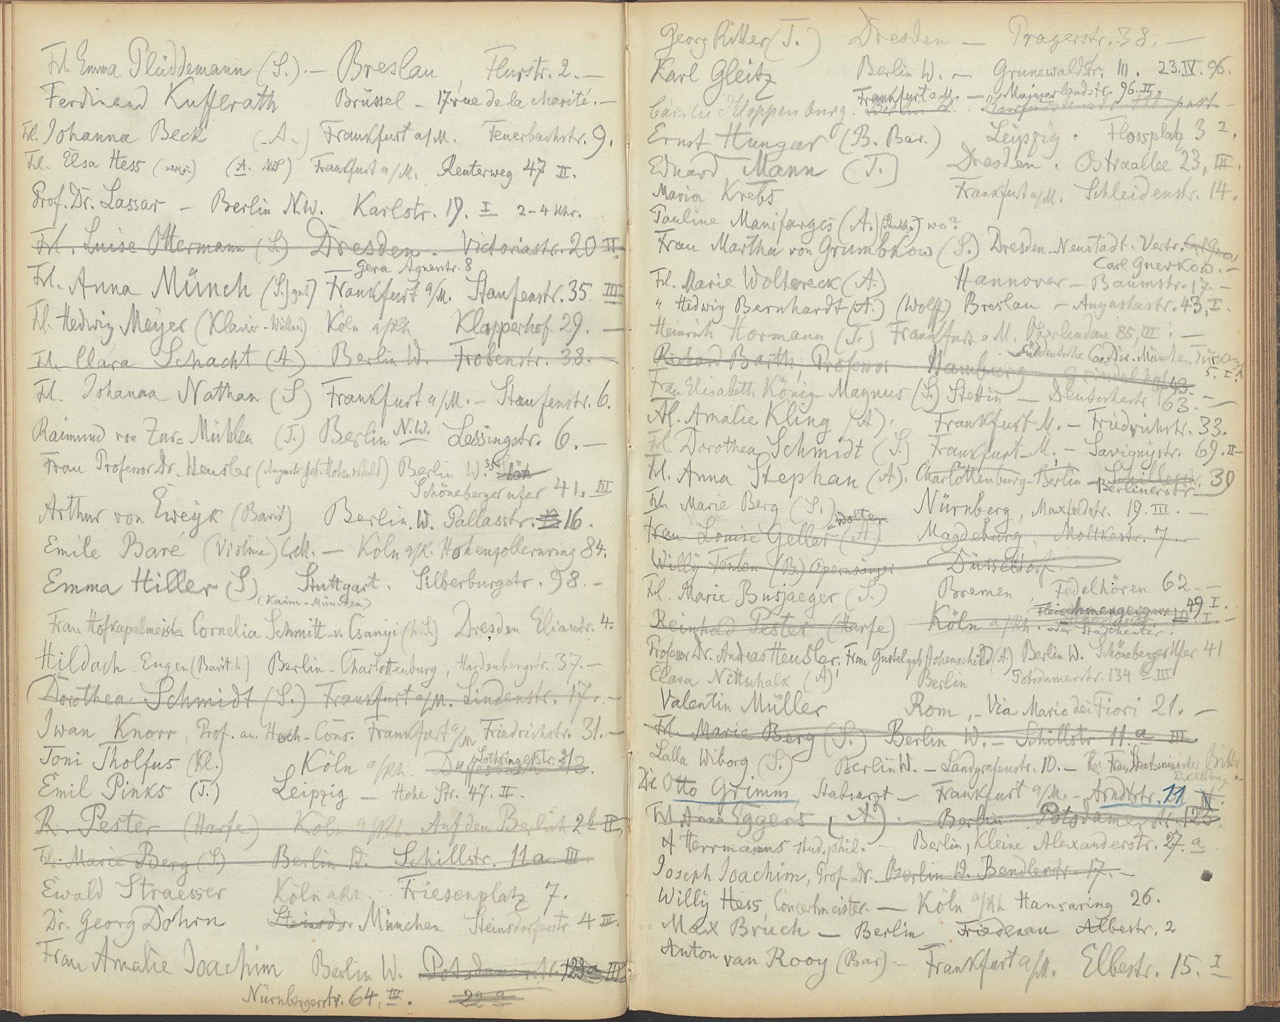 Frl. Emma Plüddemann (S.) – Breslau, Flurstr. 2. –
Ferdinand Kufferath Brüssel – 17 rue de la charité. –
Frl. Johanna Beck (A.) Frankfurt a/M. Feuerbachstr. 9.
Frl. Elsa Hess (A. MS) Frankfurt a/M. Renterweg 47 II.
Prof. Dr. Lassar – Berlin N.W. Karlstr. 19. I 2–4 Uhr.
Frl. Luise Ottermann (S) Dresden. Victoriastr. 20 II
Gera Agnesstr. 8
Frl. Anna Münch (S) Frankfurt a/M. Staufenstr. 35 III
Frl. Hedwig Meyer (Klavier-Wüllner) Köln a/Rh. Klapperhof 29. –
Frl. Clara Schacht (A) Berlin W. Frobenstr. 38. –
Frl. Johanna Nathan (S) Frankfurt a/M. – Staufenstr. 6.
Raimund von Zur-Mühlen (T.) Berlin N.W. Lessingstr. 6. –
Frau Professor Dr. Heusler Berlin W. 35
Schönebergerufer 41. III
Arthur von Eweyk (Barit) Berlin W. Pallasstr. 16.
Emile Baré (Violine) – Köln a/R. Hohenzollernring 84.
Emma Hiller (S) Stuttgart. Silberburgstr. 98. –
(Kaim-München)
Frau Hofkapellmeister Cornelia Schmitt-v. Csanyi Dresden Eliasstr. 4.
Hildach Eugen (Barit) Berlin-Charlottenburg, Hardenbergstr. 37. –
Dorothea Schmidt (S.) Frankfurt a/M. Lindenstr. 17. –
Iwan Knorr, Prof. am Hoch-Cons. Frankfurt a/M Friedrichstr. 31. –
Lothringerstr. 21
Toni Tholfus (Kl.) Köln a/Rh.
Emil Pinks (T.) Leipzig – Hohe Str. 47. II –
R. Pester (Harfe) Köln a/Rh. Auf dem Berlich 26 II
Frl. Marie Berg (S) Berlin W. Schillstr. 11a III.
Ewald Straesser Köln a/Rh. Friesenplatz 7.
Dr. Georg Dohrn München Steinsdorfstr 4 III.
Frau Amalie Joachim Berlin W. Potsdamerstr. 123a III
Nürnbergerstr. 64, III. 22a
Georg Ritter (T.) Dresden – Pragerstr. 38. –
Karl Gleitz Berlin W. – Grunewaldstr. 111. 23.IV. 96.
Frankfurt a/M. – Mainzerlandstr. 96. II. –
Cäcilie Kloppenburg. Berlin
Ernst Hungar (B. Bar.) Leipzig. Flossplatz 3 2.
Eduard Mann (T.) Dresden. Ostraallee 23, III.
Maria Krebs Frankfurt a/M. Schleidenstr. 14.
Pauline Manifarges (A.) wo?
Frau Martha von Grumbkow (S.) Dresden-Neustadt.
Carl
Frl. Marie Woltereck (A) Hannover – Baumstr. 17 –
" Hedwig Bernhardt (A) (Wolff) Breslau – Augustastr. 43, I.
Heinrich Hormann (T.) Frankfurt a. M. Oberlindau 85, III –
Richard Barth, Professor Hamburg
Frau Elisabeth König-Magnus (S.) Stettin – Deutschestr. 63. –
Frl. Amalie Kling (A). Frankfurt M. – Friedrichstr. 33.
Frl. Dorothea Schmidt (S) Frankfurt M. – Savignystr. 69. II –
Frl. Anna Stephan (A). Charlottenburg-Berlin 39
Berlinerstr.
Frl. Marie Berg (S.) Nürnberg, Maxfeldstr. 19. III. –
Wolter
Frau Louise Geller (A) Magdeburg, Moltkestr. 7. –
Willy Fenten (B.) Opernsänger Düsseldorf.
Frl. Marie Busjaeger (S.) Bremen Fedelhören 62. –
Fleischmengergasse 49 I.
Reinhold Pester (Harfe) Köln a/Rh.
oder Stadttheater.
Professor Dr. Andreas Heusler, Frau Gustel geb. Hohenschild (A) Berlin W. Schöneberger Ufer 41
Clara Nittschalk (A) Berlin Potsdamerstr. 134 III
Valentin Müller Rom, – Via Mario dei Fiori 21. –
Frl. Marie Berg (S.) Berlin W. – Schillstr. 11.a III
Lalla Wiborg (S.) Berlin W. – Landgrafenstr. 10. –
Dr. Otto Grimm, Stabsarzt – Frankfurt a/M. – Arndtstr. 11
Frl. Anna Eggers (A). Berlin Potsdamerstr. 123
A Herrmanns stud. phil. – Berlin, Kleine Alexanderstr. 27. a
Joseph Joachim, Prof. Dr. Berlin W. Bendlerstr. 17. –
Willy Hess, Concertmeister. – Köln a/Rh Hansaring 26.
Max Bruch – Berlin Friedenau Albestr. 2
Anton van Rooy (Bar) – Frankfurt a/M. Elbestr. 15. I